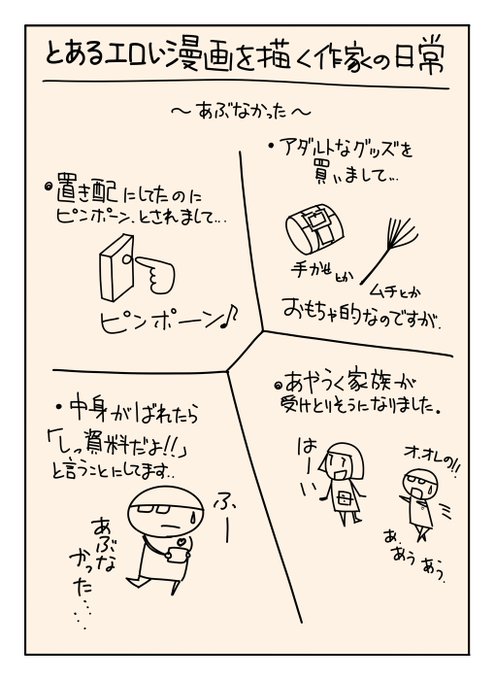 とあるエロい漫画を描く作家の日常
～あぶなかった～
・アダルトなグッズを
買いまして…
手かせとか
ムチとか
おもちゃ的なのですが.
・置き配にしてたのに
ピンポーン、とされまして…
ピンポーン♪
・あやうく家族が
受けとりそうになりました。
はーい
オ.オレの!!
あ.
あう
あう.
・中身がばれたら
「しっ資料だよ!!」
と言うことにしてます..
ふー
あぶな
かった……